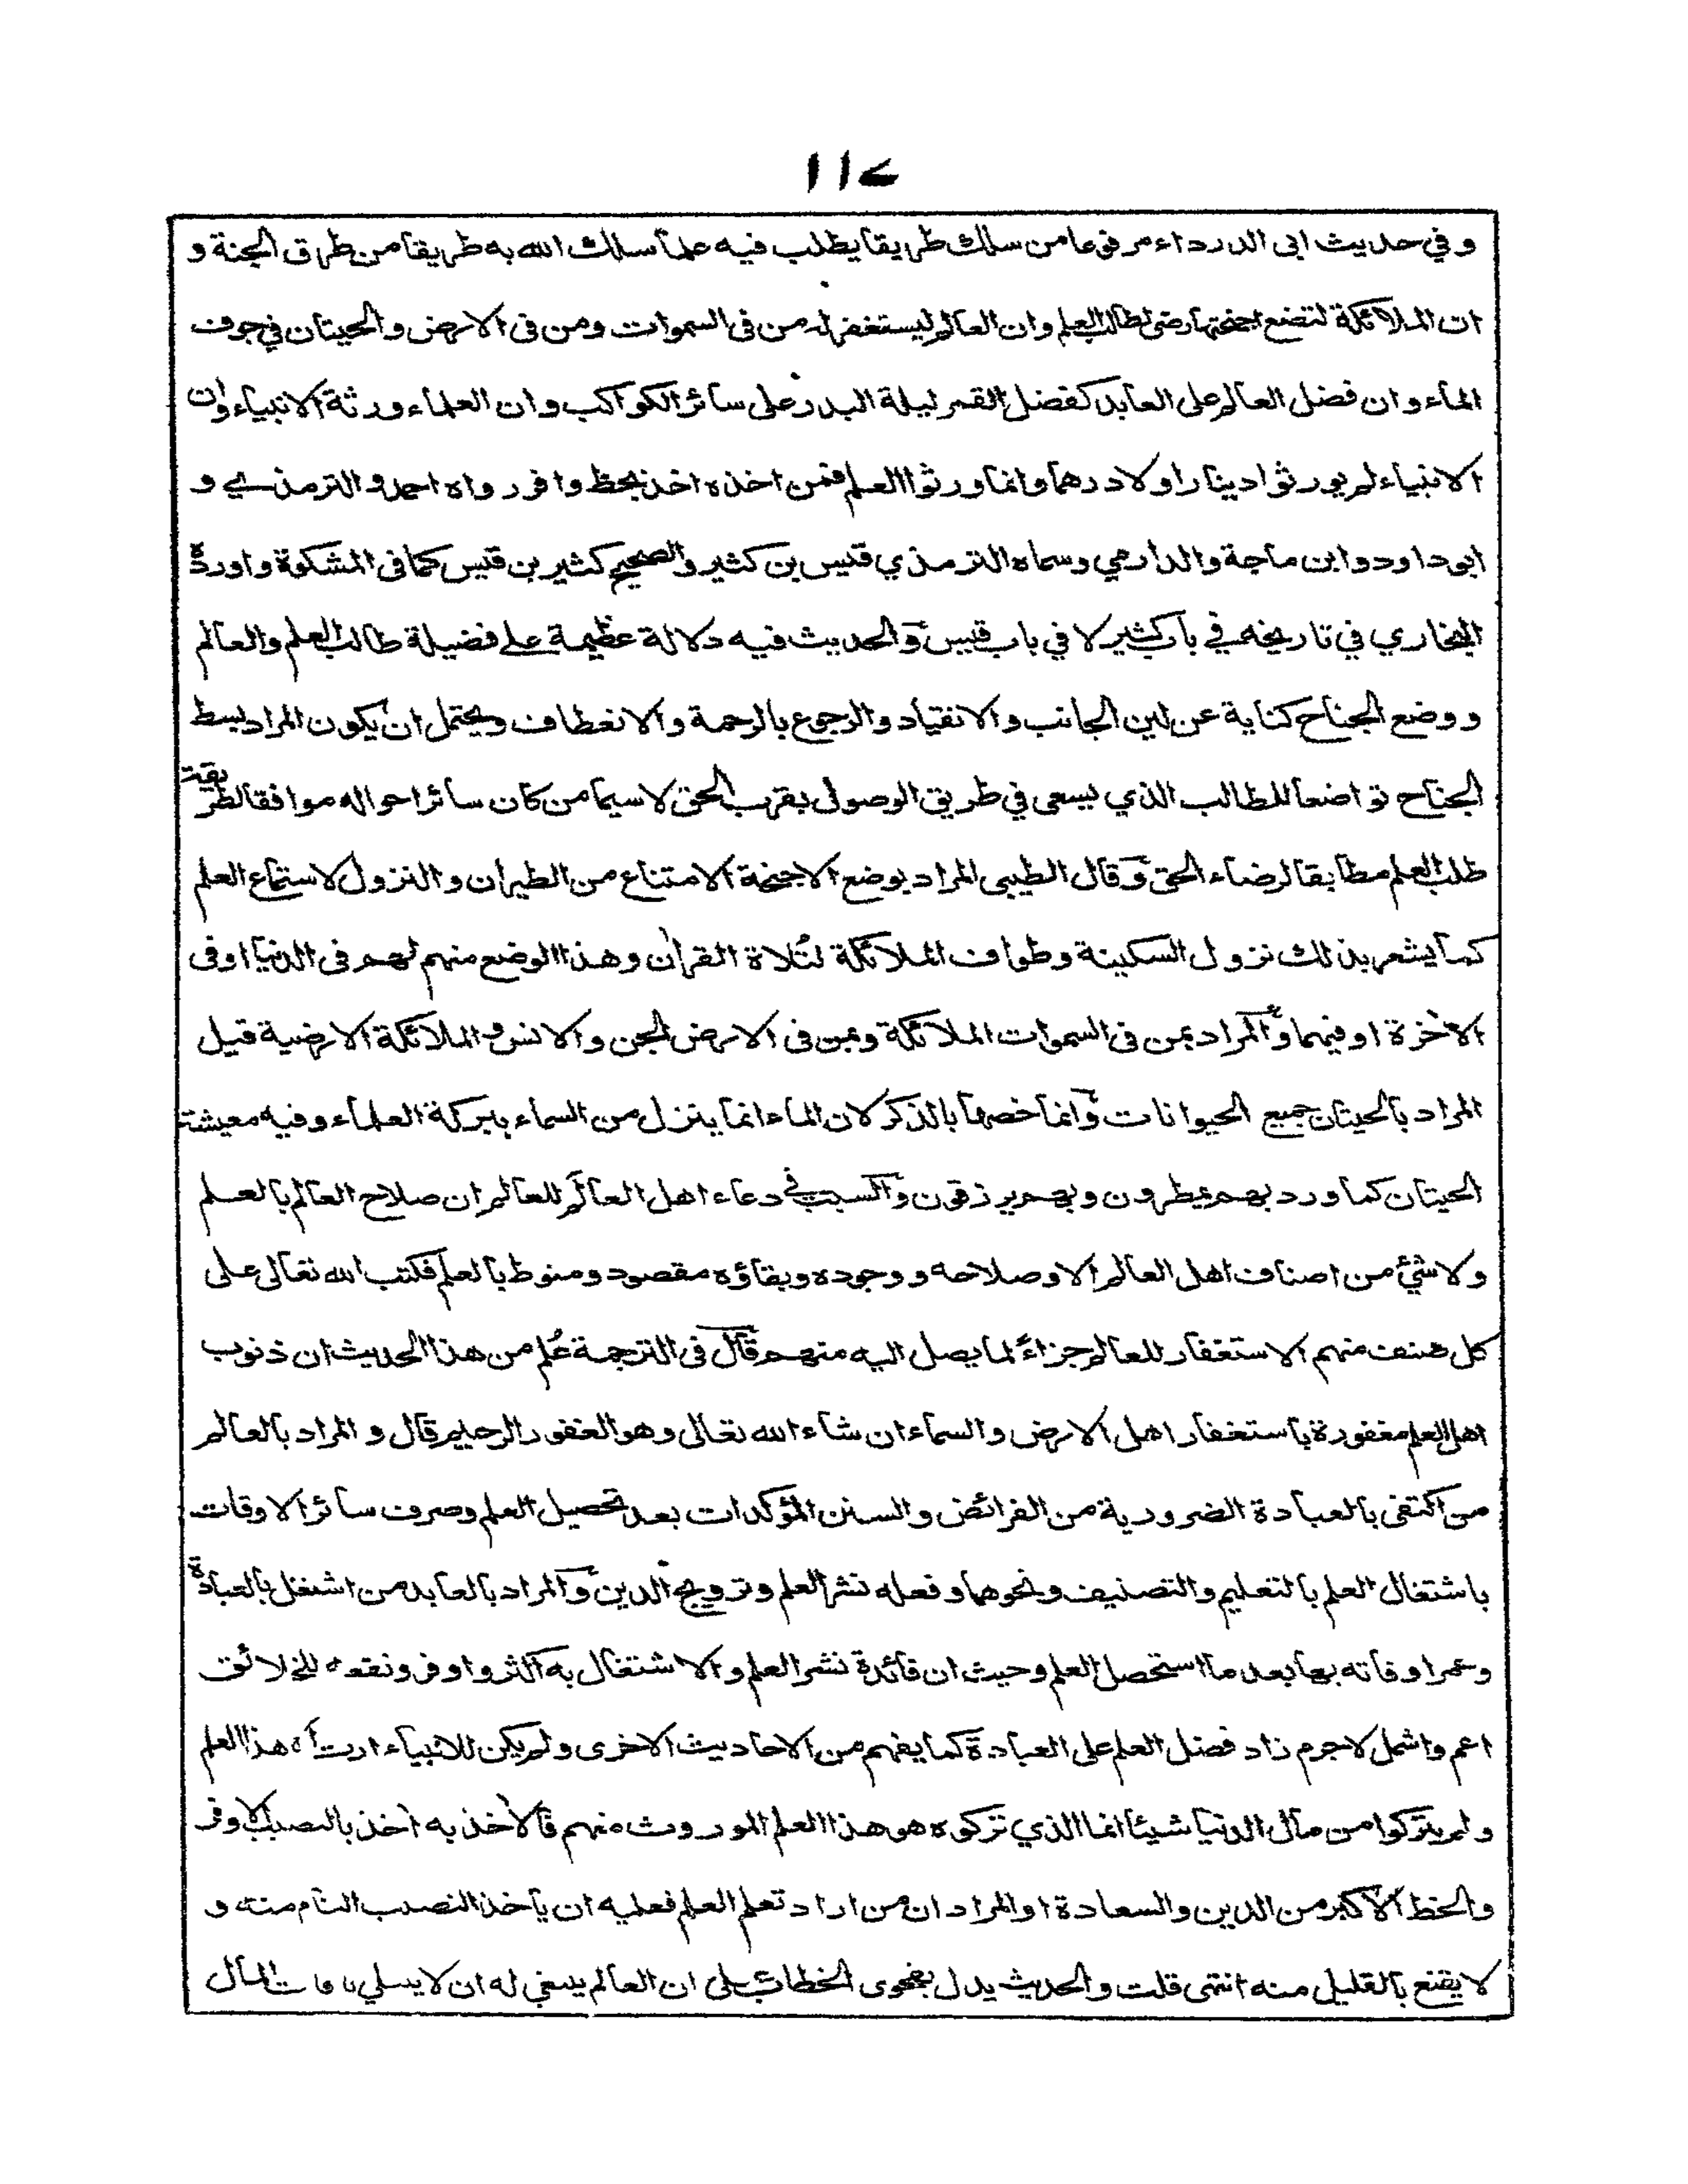 ١١٧
وفي حديث ابى الدرداء مرفوعا من سلك طريقا يطلب فيه علما سلك الله به طريقا من طرق الجنة و
ان الملائكة لتضع اجنحتها رضى لطالب العلم وان العالم ليستغفر له من فى السموات ومن فى الارض والحيتان في جوف
الماء وان فضل العالم على العابد كفضل القمر ليلة البدر على سائر الكواكب وان العلماء ورثة الانبياء وان
الانبياء لم يورثوا دينارا ولا درهما وانما ورثوا العلم فمن اخذه اخذ بحظ وافر رواه احمد والترمذي و
ابوداود وابن ماجة والدارمي وسماه الترمذي قيس بن كثير والصحيح كثير بن قيس كما فى المشكوة واورده
البخاري في تاريخه في باب كثير لا في باب قيس والحديث فيه دلالة عظيمة على فضيلة طالب العلم والعالم
ووضع الجناح كناية عن لين الجانب والانقياد والرجوع بالرحمة والانعطاف ويحتمل ان يكون المراد بسط
الجناح تواضعا للطالب الذي يسعى في طريق الوصول بقرب الحق لاسيما من كان سائر احواله موافقا لطريقة
طلب العلم مطابقا لرضاء الحق وقال الطيبي المراد بوضع الاجنحة الامتناع من الطيران والنزول لاستماع العلم
كما يشعر بذلك نزول السكينة وطواف الملائكة لتلاة القران وهذا الوضع منهم لهم فى الدنيا او فى
الاخرة او فيهما والمراد بمن فى السموات الملائكة وبمن فى الارض الجن والانس والملائكة الارضية قيل
المراد بالحيتان جميع الحيوانات وانما خصها بالذكر لان الماء انما ينزل من السماء ببركة العلماء وفيه معيشة
الحيتان كما ورد بهم يمطرون وبهم يرزقون والسبب في دعاء اهل العالم للعالم ان صلاح العالم بالعلم
ولا شئ من اصناف اهل العالم الا وصلاحه ووجوده وبقاؤه مقصود ومنوط بالعلم فكتب الله تعالى على
كل صنف منهم الاستغفار للعالم جزاء لما يصل اليه منهم قال فى الترجمة علم من هذا الحديث ان ذنوب
اهل العلم مغفورة باستغفار اهل الارض والسماء ان شاء الله تعالى وهو الغفور الرحيم قال والمراد بالعالم
من اكتفى بالعبادة الضرورية من الفرائض والسنن المؤكدات بعد تحصيل العلم وصرف سائر الاوقات
باشتغال العلم بالتعليم والتصنيف ونحوها وفعله نشر العلم وترويج الدين والمراد بالعابد من اشتغل بالعبادة
وعمر اوقاته بها بعد ما استحصل العلم وحيث ان فائدة نشر العلم والاشتغال به اكثر واوفر ونفعه للخلائق
اعم واشمل لاجرم زاد فضل العلم على العبادة كما يفهم من الاحاديث الاخرى ولم يكن للانبياء ارث الا هذا العلم
ولم يتركوا من مال الدنيا شيئا انما الذي تركوه هو هذا العلم الموروث منهم فالاخذ به اخذ بالنصيب الاوفر
والحظ الاكبر من الدين والسعادة او المراد ان من اراد تعلم العلم فعليه ان ياخذ النصيب التام منه و
لا يقنع بالقليل منه انتهى قلت والحديث يدل بفحوى الخطاب على ان العالم ينبغي له ان لا يبالي المال